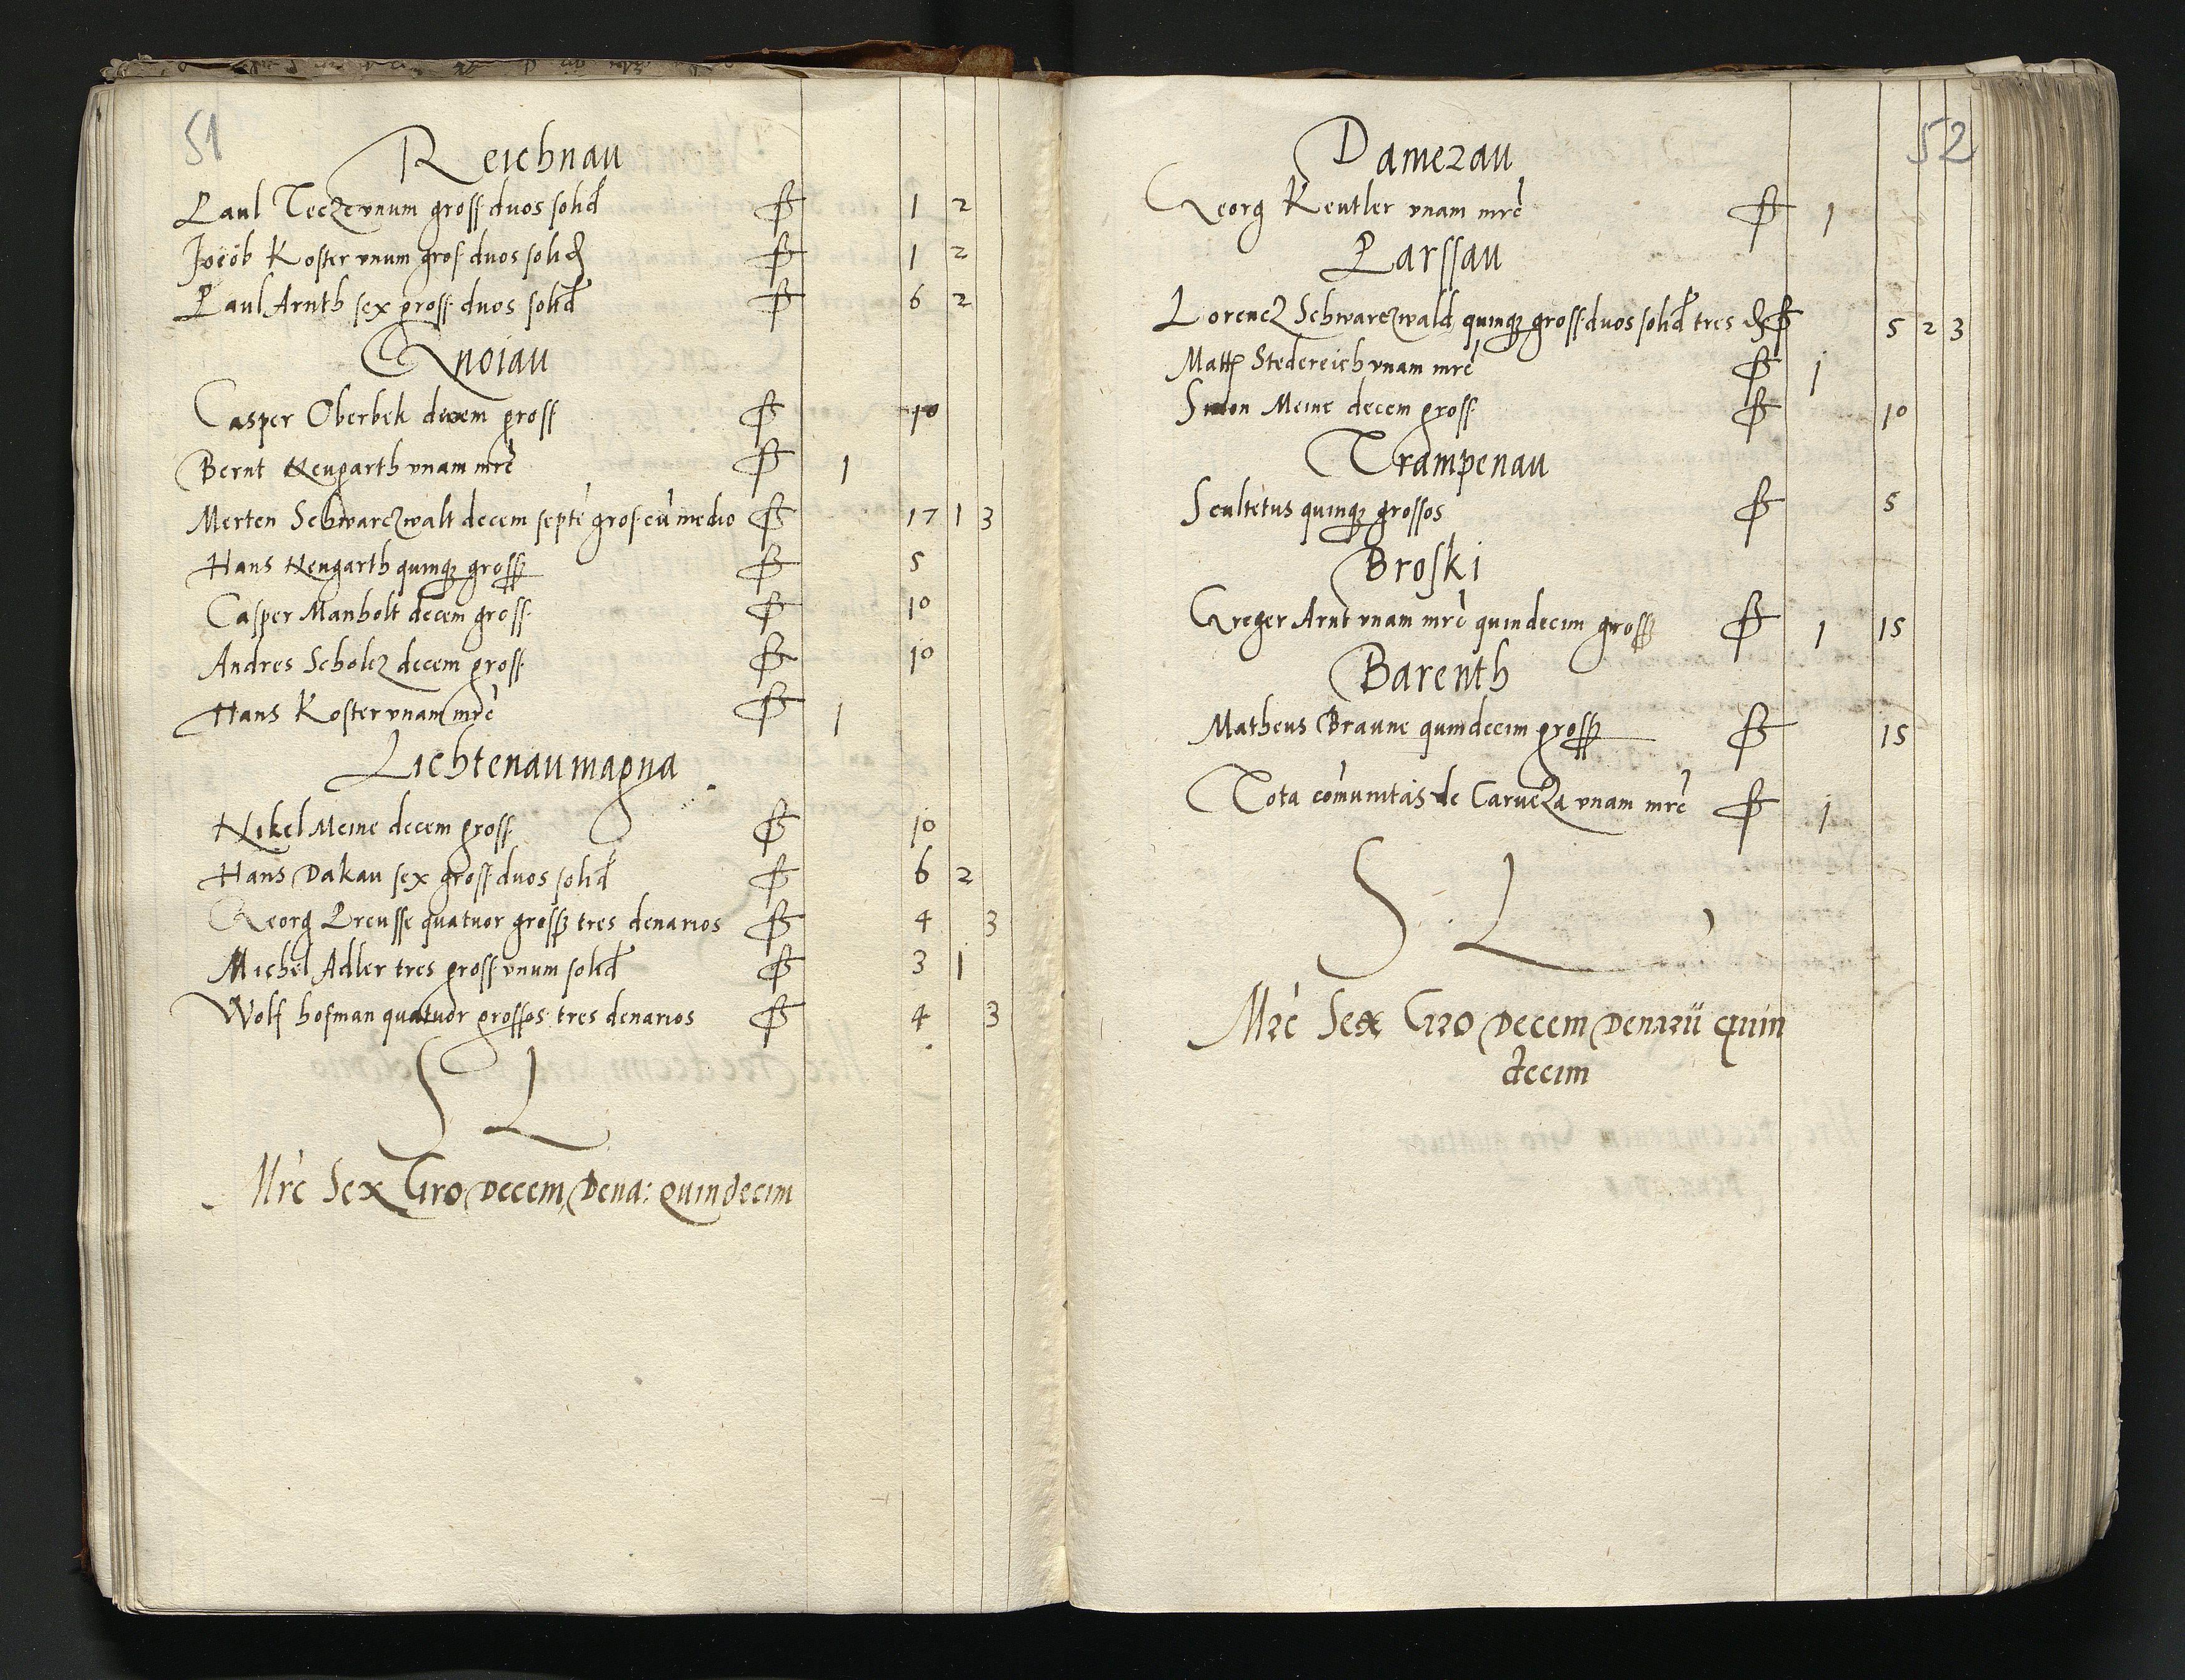 51
Reichnau
Paul Teczc vnum gross duos solid 1 2
Jocob Koster vnum gros duos solid 1 2
Paul Arnth sex gross duos solid 6 2
Gnoiau
Casper Oberbek decem gross 10
Bernt Neugarth vnam mrc 1
Merten Schwarczwalt decem septe gros cu medio 17 1 3
Hans Neugarth quinqz gross 5
Casper Manholt decem gross 10
Andres Scholcz decem gross 10
Hans Koster vnam mrc 1
Lichtenau magna
Nikel Meine decem gross 10
Hans Dakau sex gross duos solid 6 2
Georg Preusse quatuor gross tres denarios 4 3
Michel Adler tres gross vnum solid 3 1
Wolf hofman quatuor grossos tres denarios 4 3
S L
Mrc Sex Gro Decem Dena: Quindecim
52
Damezau
Georg Keutler vnam mrc 1
Parssau
Lorencz Schwarczwald quinqz gross duos solid tres d 5 2 3
Matt Stedereich vnam mrc 1
Simon Meine decem gross 10
Trampenau
Scultetus quinqz grossos 5
Broski
Greger Arnt vnam mrc quindecim gross 1 15
Barenth
Matheus Braune quindecim gross 15
Tota comunitas de Carucza vnam mrc 1
S L
Mrc Sex Gro Decem Denarii quin
decim